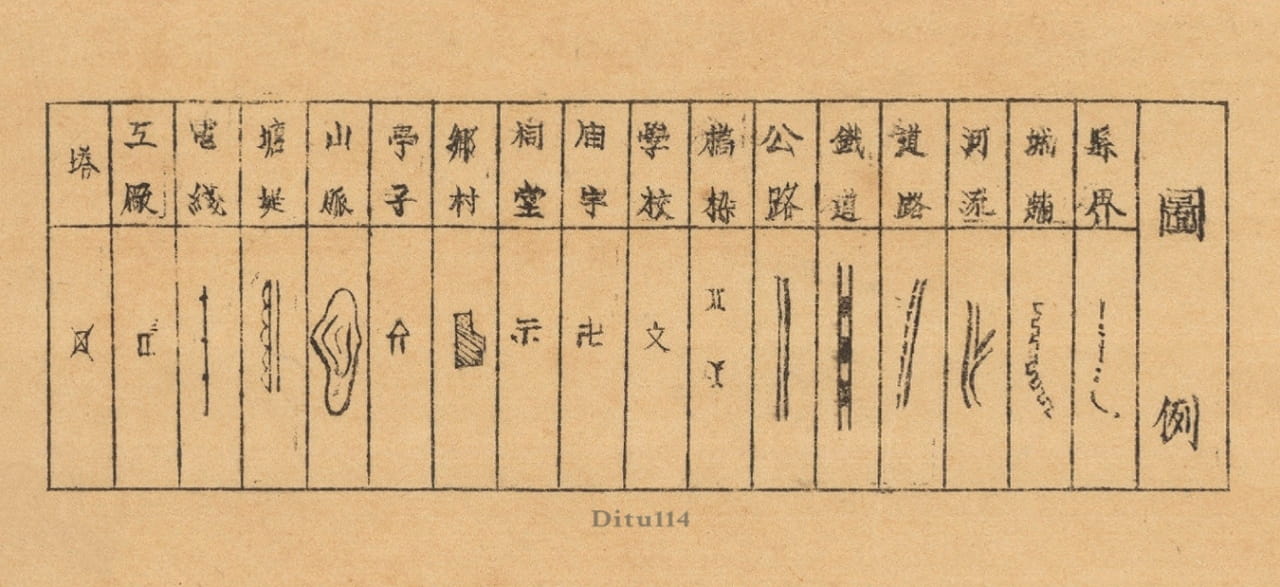 圖例
縣界
城牆
河流
道路
鐵道
公路
橋樑
學校
庙宇
祠堂
鄉村
亭子
山脈
塘堤
電綫
工厰
塔
文
卍
示
Ditu114